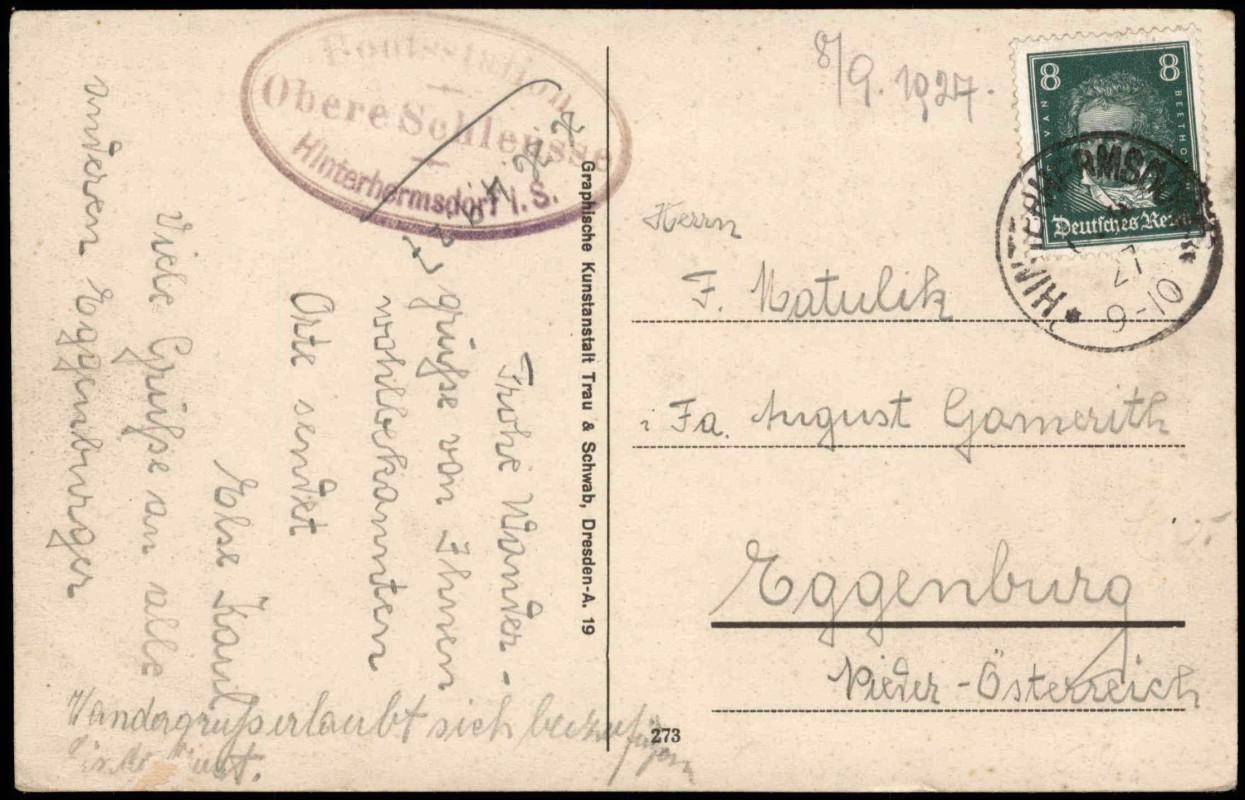 Bootsstation
Obere Schleusse
Hinterhermsdorf i. S.
Frohe Wander-
grüße von Ihnen
wohlbekannten
Orte sendet
Else Kaul
Viele Grüße an alle
anderen Eggenburger
Wandergruß erlaubt sich beizufügen
Graphische Kunstanstalt Trau & Schwab, Dresden-A. 19
273
8/9. 1927.
8 8
VAN BEETHOVEN
Deutsches Reich
* HINTERHERMSDORF
27
9-10
Herrn
F. Matulik
i Fa. August Gamerith
Eggenburg
Nieder-Österreich